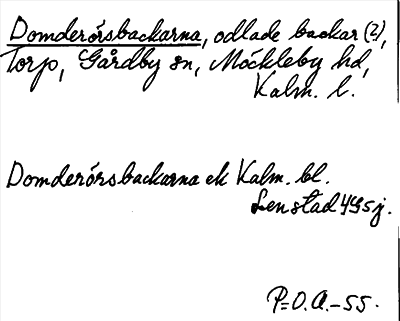 Domderörsbackarna, odlade backar (2),
Torp, Gårdby sn, Möckleby hd,
Kalm. l.
Domderörsbackarna ek Kalm. bl.
Lenstad 4G5j.
P=O.A.-55.